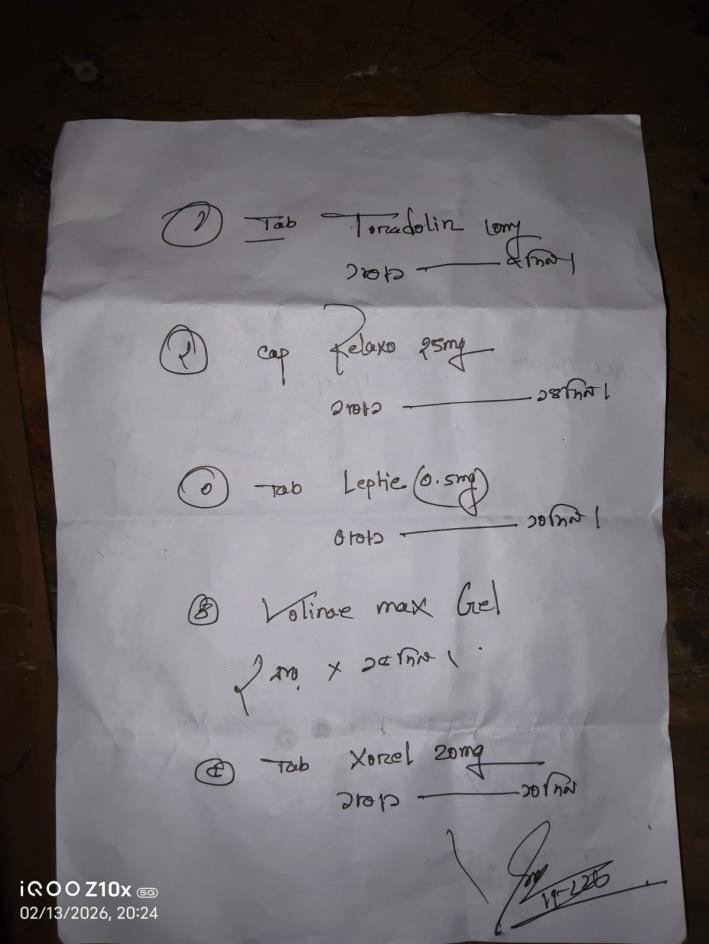 ১ Tab Toradolin 10mg
১+০+১ ——— ৫ দিন।
২ cap Relaxo 25mg
১+০+১ ——— ১৪ দিন।
৩ Tab Leptic (0.5mg)
০+০+১ ——— ১০ দিন।
৪ Volinac max Gel
২ বার × ১৫ দিন।
৫ Tab Xorel 20mg
১+০+১ ——— ২০ দিন
iQOO Z10x 5G
02/13/2026, 20:24